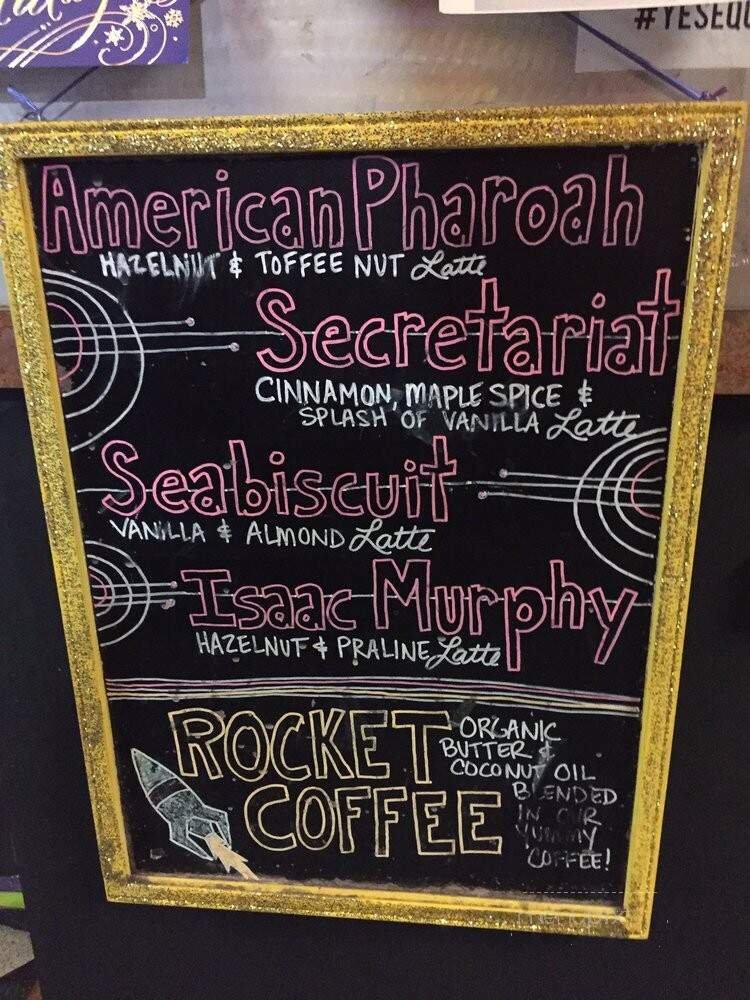 #YESEQU
American Pharoah
HAZELNUT & TOFFEE NUT Latte
Secretariat
CINNAMON, MAPLE SPICE &
SPLASH OF VANILLA Latte
Seabiscuit
VANILLA & ALMOND Latte
Isaac Murphy
HAZELNUT & PRALINE Latte
ROCKET
COFFEE
ORGANIC
BUTTER &
COCONUT OIL
BLENDED
IN OUR
YUMMY
COFFEE!